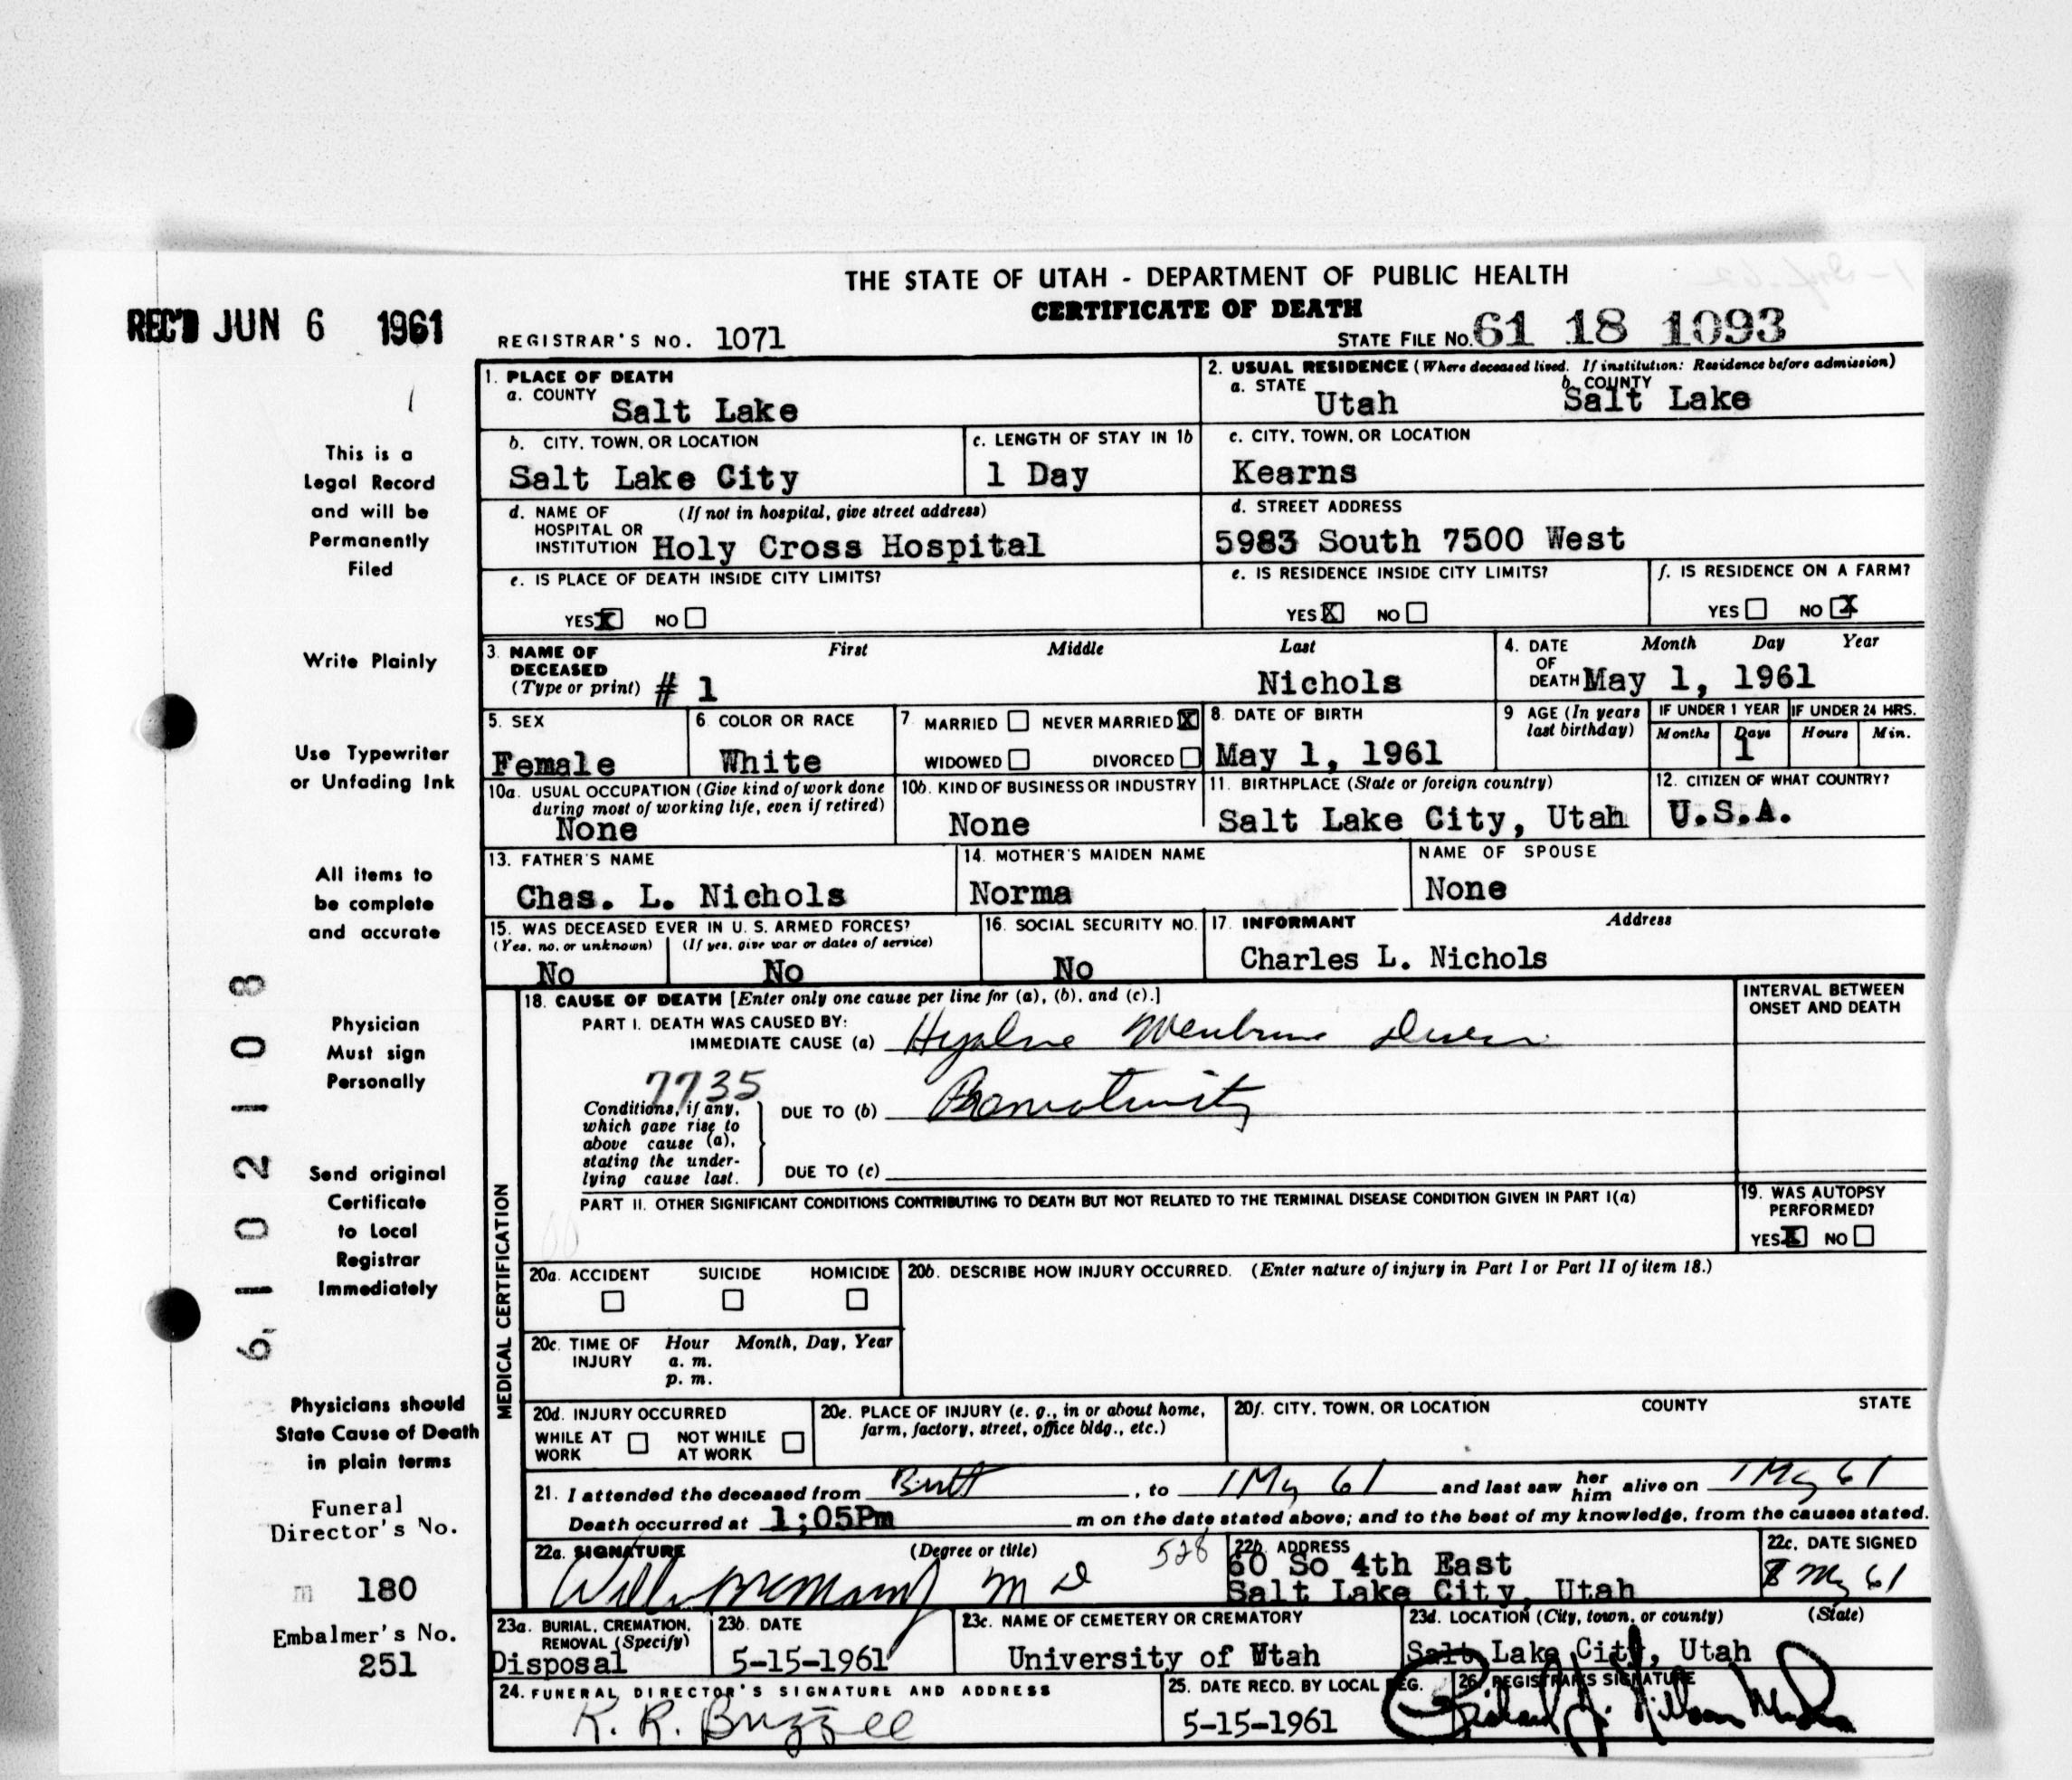 THE STATE OF UTAH - DEPARTMENT OF PUBLIC HEALTH
CERTIFICATE OF DEATH
REC'D JUN 6 1961
REGISTRAR'S NO. 1071
STATE FILE NO. 61 18 1093
1. PLACE OF DEATH
a. COUNTY Salt Lake
2. USUAL RESIDENCE (Where deceased lived. If institution: Residence before admission)
a. STATE Utah b. COUNTY Salt Lake
b. CITY, TOWN, OR LOCATION
Salt Lake City
c. LENGTH OF STAY IN 1b
1 Day
c. CITY, TOWN, OR LOCATION
Kearns
d. NAME OF HOSPITAL OR INSTITUTION (If not in hospital, give street address)
Holy Cross Hospital
d. STREET ADDRESS
5983 South 7500 West
e. IS PLACE OF DEATH INSIDE CITY LIMITS?
YES X NO
e. IS RESIDENCE INSIDE CITY LIMITS?
YES X NO
f. IS RESIDENCE ON A FARM?
YES NO X
3. NAME OF DECEASED (Type or print) First Middle Last
# 1 Nichols
4. DATE OF DEATH Month Day Year
May 1, 1961
5. SEX
Female
6. COLOR OR RACE
White
7 MARRIED NEVER MARRIED X
WIDOWED DIVORCED
8. DATE OF BIRTH
May 1, 1961
9 AGE (In years last birthday)
IF UNDER 1 YEAR
Months Days
1
IF UNDER 24 HRS.
Hours Min.
10a. USUAL OCCUPATION (Give kind of work done during most of working life, even if retired)
None
10b. KIND OF BUSINESS OR INDUSTRY
None
11. BIRTHPLACE (State or foreign country)
Salt Lake City, Utah
12. CITIZEN OF WHAT COUNTRY?
U.S.A.
13. FATHER'S NAME
Chas. L. Nichols
14. MOTHER'S MAIDEN NAME
Norma
NAME OF SPOUSE
None
15. WAS DECEASED EVER IN U. S. ARMED FORCES?
(Yes, no, or unknown) (If yes, give war or dates of service)
No No
16. SOCIAL SECURITY NO.
No
17. INFORMANT Address
Charles L. Nichols
MEDICAL CERTIFICATION
18. CAUSE OF DEATH [Enter only one cause per line for (a), (b), and (c).]
INTERVAL BETWEEN ONSET AND DEATH
PART I. DEATH WAS CAUSED BY:
IMMEDIATE CAUSE (a) Hyaline Membrane Disease
7735
Conditions, if any, which gave rise to above cause (a), stating the underlying cause last.
DUE TO (b) Prematurity
DUE TO (c)
PART II. OTHER SIGNIFICANT CONDITIONS CONTRIBUTING TO DEATH BUT NOT RELATED TO THE TERMINAL DISEASE CONDITION GIVEN IN PART I(a)
19. WAS AUTOPSY PERFORMED?
YES X NO
20a. ACCIDENT SUICIDE HOMICIDE
20b. DESCRIBE HOW INJURY OCCURRED. (Enter nature of injury in Part I or Part II of item 18.)
20c. TIME OF INJURY Hour Month, Day, Year
a. m.
p. m.
20d. INJURY OCCURRED
WHILE AT WORK NOT WHILE AT WORK
20e. PLACE OF INJURY (e. g., in or about home, farm, factory, street, office bldg., etc.)
20f. CITY, TOWN, OR LOCATION COUNTY STATE
21. I attended the deceased from Birth, to 1 My 61 and last saw her him alive on 1 My 61
Death occurred at 1;05Pm m on the date stated above; and to the best of my knowledge, from the causes stated.
22a. SIGNATURE (Degree or title) 528
M D
22b. ADDRESS
60 So 4th East
Salt Lake City, Utah
22c. DATE SIGNED
8 My 61
23a. BURIAL, CREMATION, REMOVAL (Specify)
Disposal
23b. DATE
5-15-1961
23c. NAME OF CEMETERY OR CREMATORY
University of Utah
23d. LOCATION (City, town, or county) (State)
Salt Lake City, Utah
24. FUNERAL DIRECTOR'S SIGNATURE AND ADDRESS
R. R. Buzzee
25. DATE RECD. BY LOCAL REG.
5-15-1961
26. REGISTRAR'S SIGNATURE
This is a
Legal Record
and will be
Permanently
Filed
Write Plainly
Use Typewriter
or Unfading Ink
All items to
be complete
and accurate
Physician
Must sign
Personally
Send original
Certificate
to Local
Registrar
Immediately
Physicians should
State Cause of Death
in plain terms
Funeral
Director's No.
180
Embalmer's No.
251